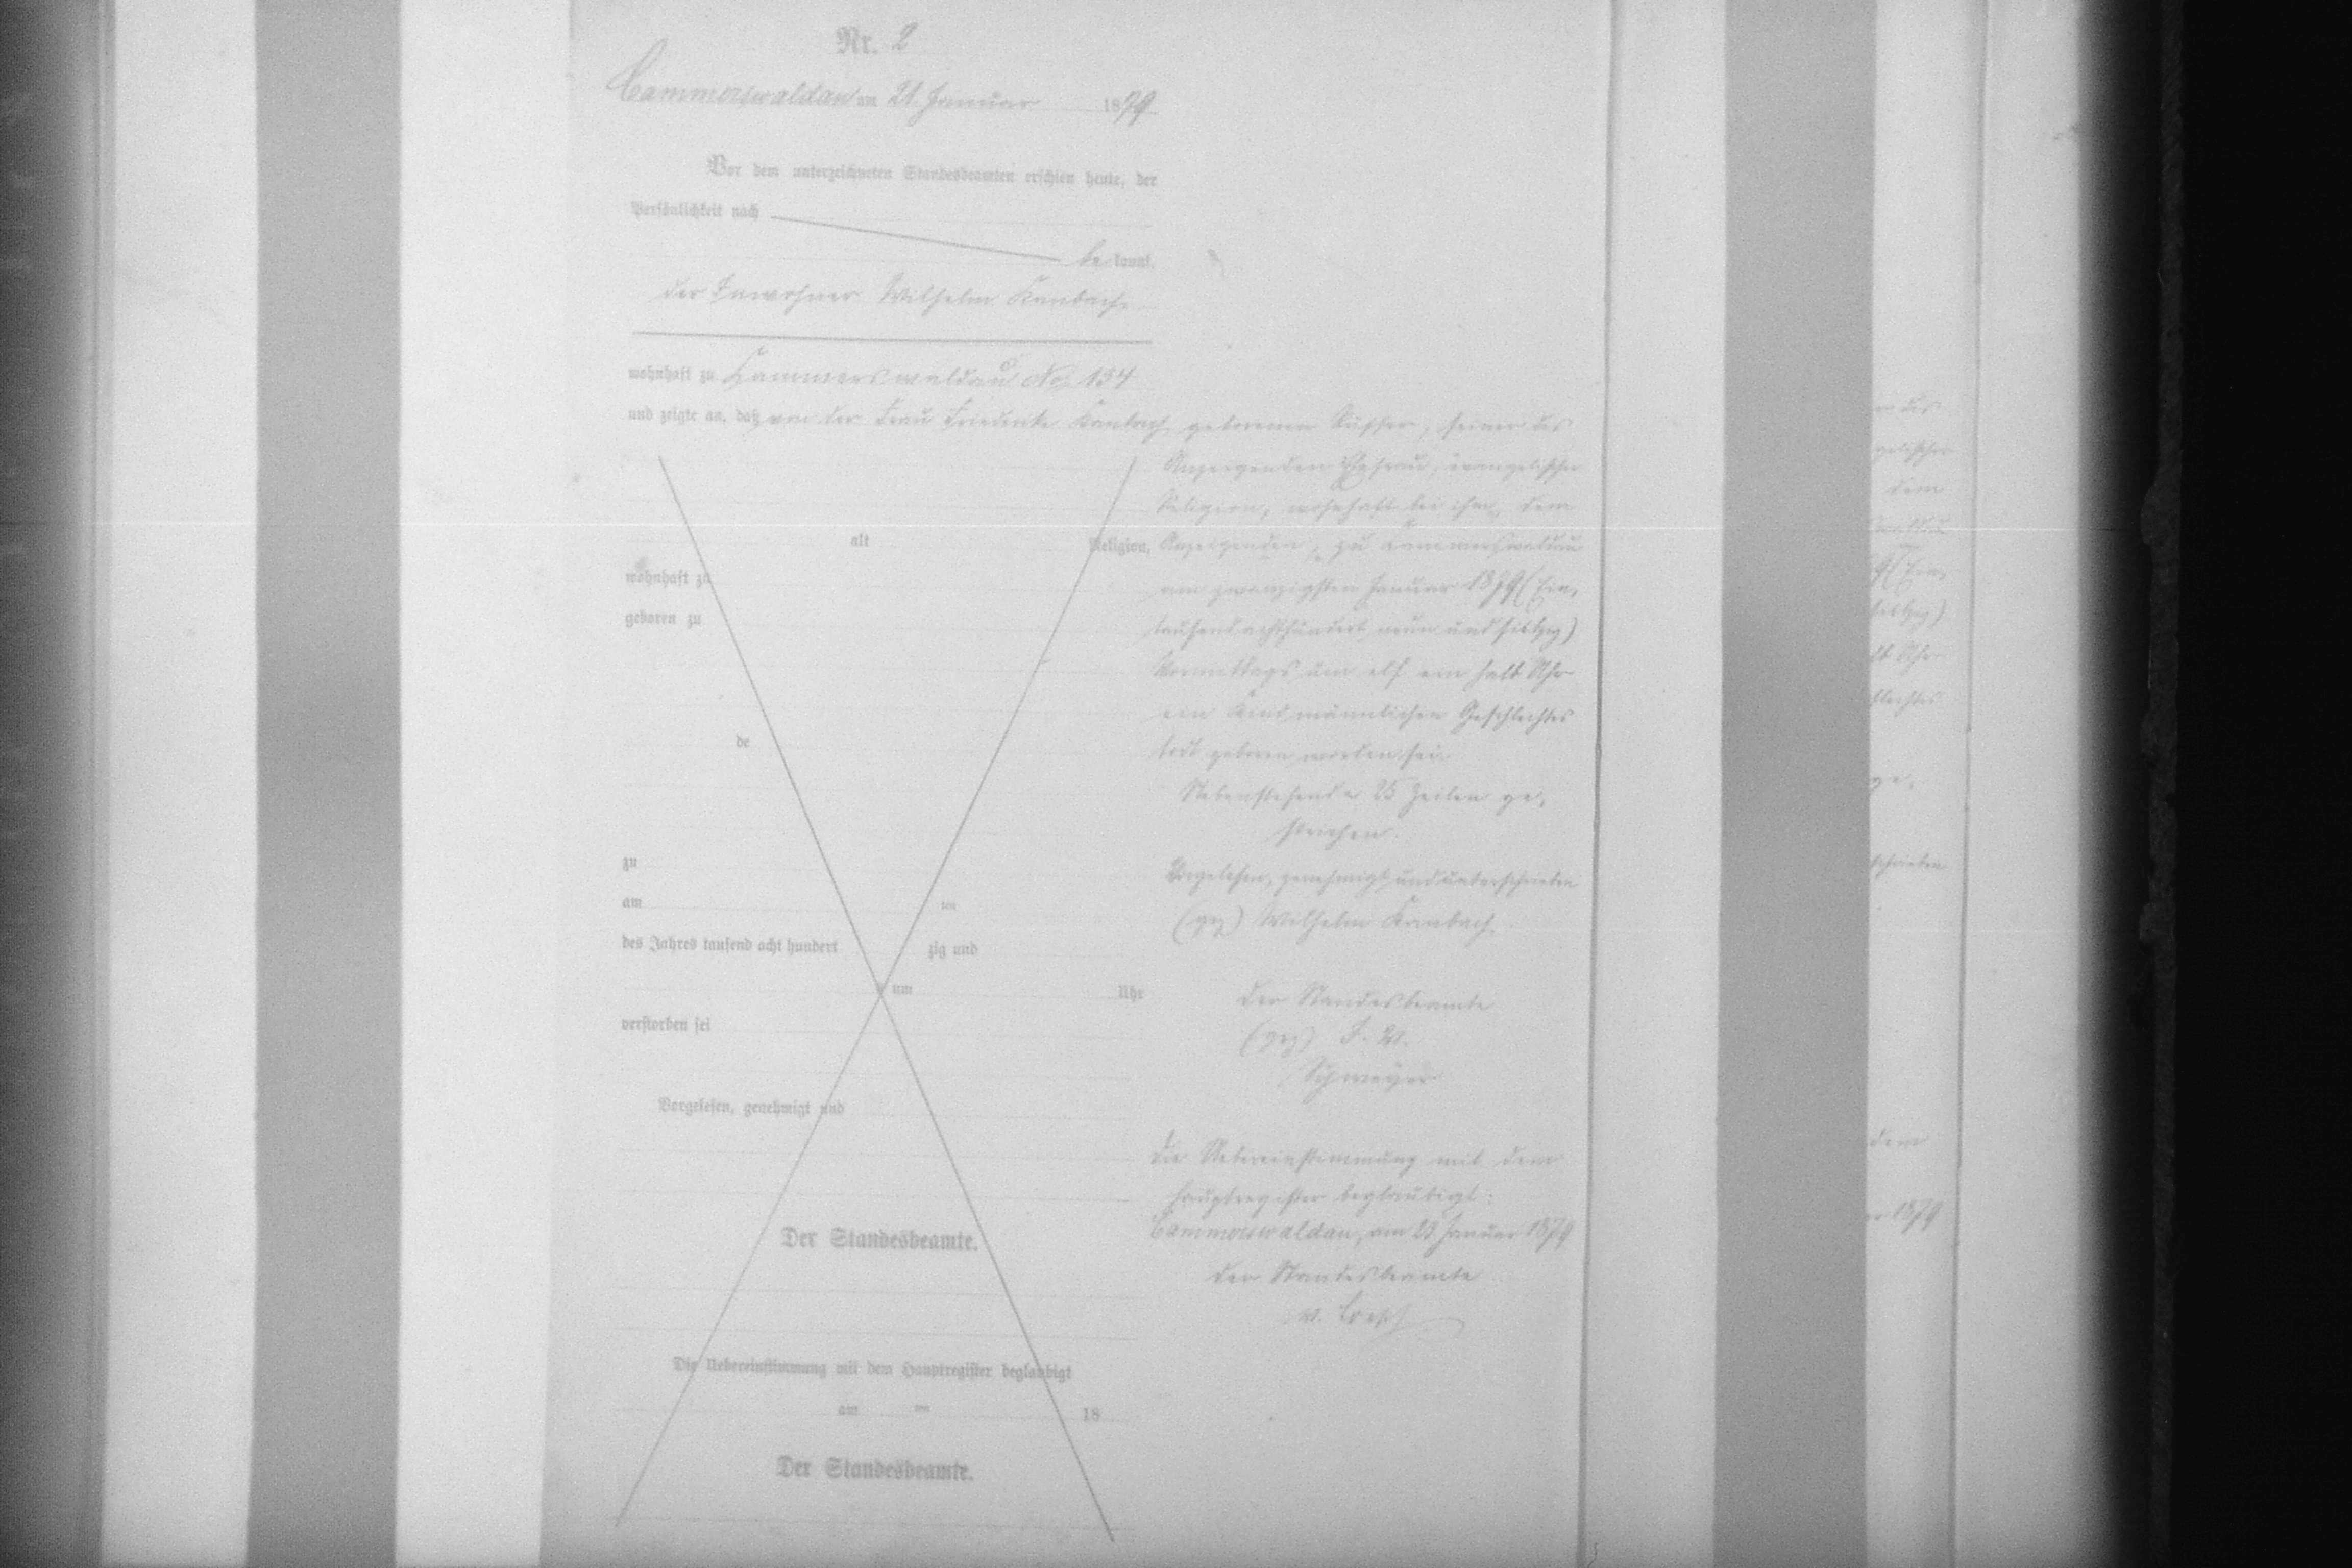 Nr. 2
Cammerswaldau am 21. Januar 1879
Vor dem unterzeichneten Standesbeamten erschien heute, der
Persönlichkeit nach
be kannt,
der Inwohner Wilhelm Kambach
wohnhaft zu Cammerswaldau No. 134
und zeigte an, daß von der Frau Friederike Kambach geborenen seiner des
Anzeigenden Ehefrau, evangelischer
Religion, wohnhaft bei ihm, dem
alt Religion, Anzeigenden, zu Cammerswaldau
wohnhaft zu am zwanzigsten Januar 1879 (Ein,
geboren zu tausend achthundert neun und siebzig)
Vormittags um elf ein halb Uhr
ein Kind männlichen Geschlechtes
de todt geboren worden sei.
Nebenstehende 25 Zeilen ge,
strichen.
zu Vorgelesen, genehmigt und unterschrieben
am ten (gez) Wilhelm Kambach.
des Jahres tausend acht hundert zig und
um Uhr Der Standesbeamte
verstorben sei (gez) F. W.
Vorgelesen, genehmigt und
Die Uebereinstimmung mit dem
Hauptregister beglaubigt:
Der Standesbeamte. Cammerswaldau, am 23 Januar 1879
Der Standesbeamte
Die Uebereinstimmung mit dem Hauptregister beglaubigt
am ten 18
Der Standesbeamte.
er des
gelischer
dem
waldau
9 (Ein,
siebzig)
lb Uhr
chlechtes
ge,
schrieben
dem
r 1879